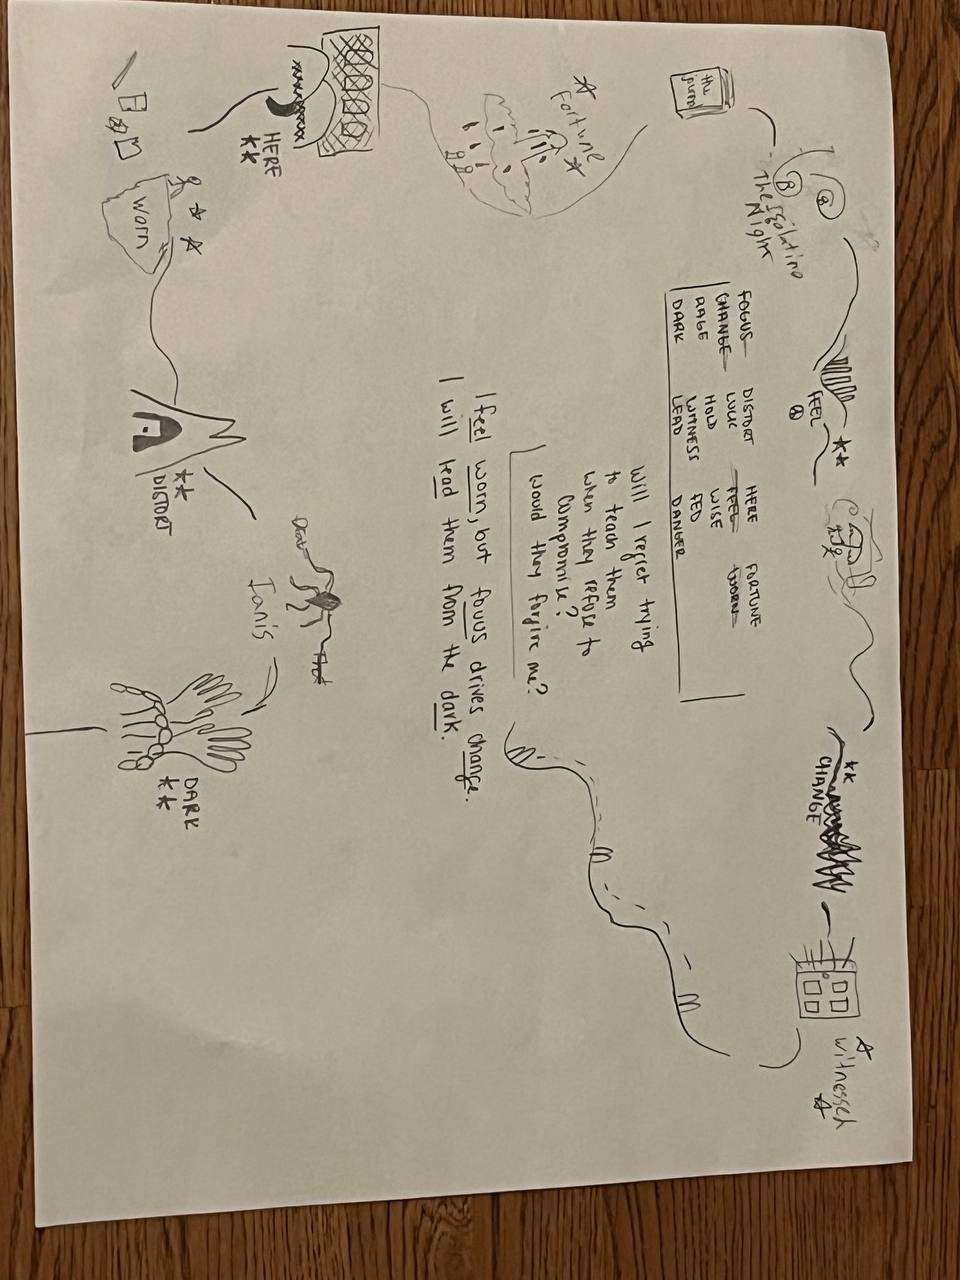 the
B
The
Night
FEEL
CHANGE
witnessed
FOCUS DISTORT HERE FORTUNE
CHANGE LUCK FEEL WORN
RAGE HOLD WISE
WITNESS FED
DARK LEAD DANGER
Will I regret trying
to teach them
when they refuse to
compromise?
Would they forgive me?
I feel worn, but focus drives change.
I will lead them from the dark.
Fortune
HERE
Worn
DISTORT
Ianis
DARK